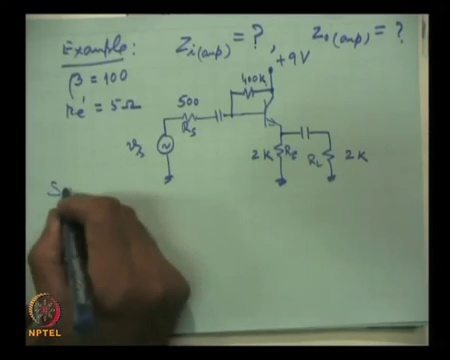 Example: Zi(amp) = ? , Zo(amp) = ?
β = 100
re' = 5Ω
+9V
400K
500
Rs
vs
2K RE
RL 2K
S
NPTEL